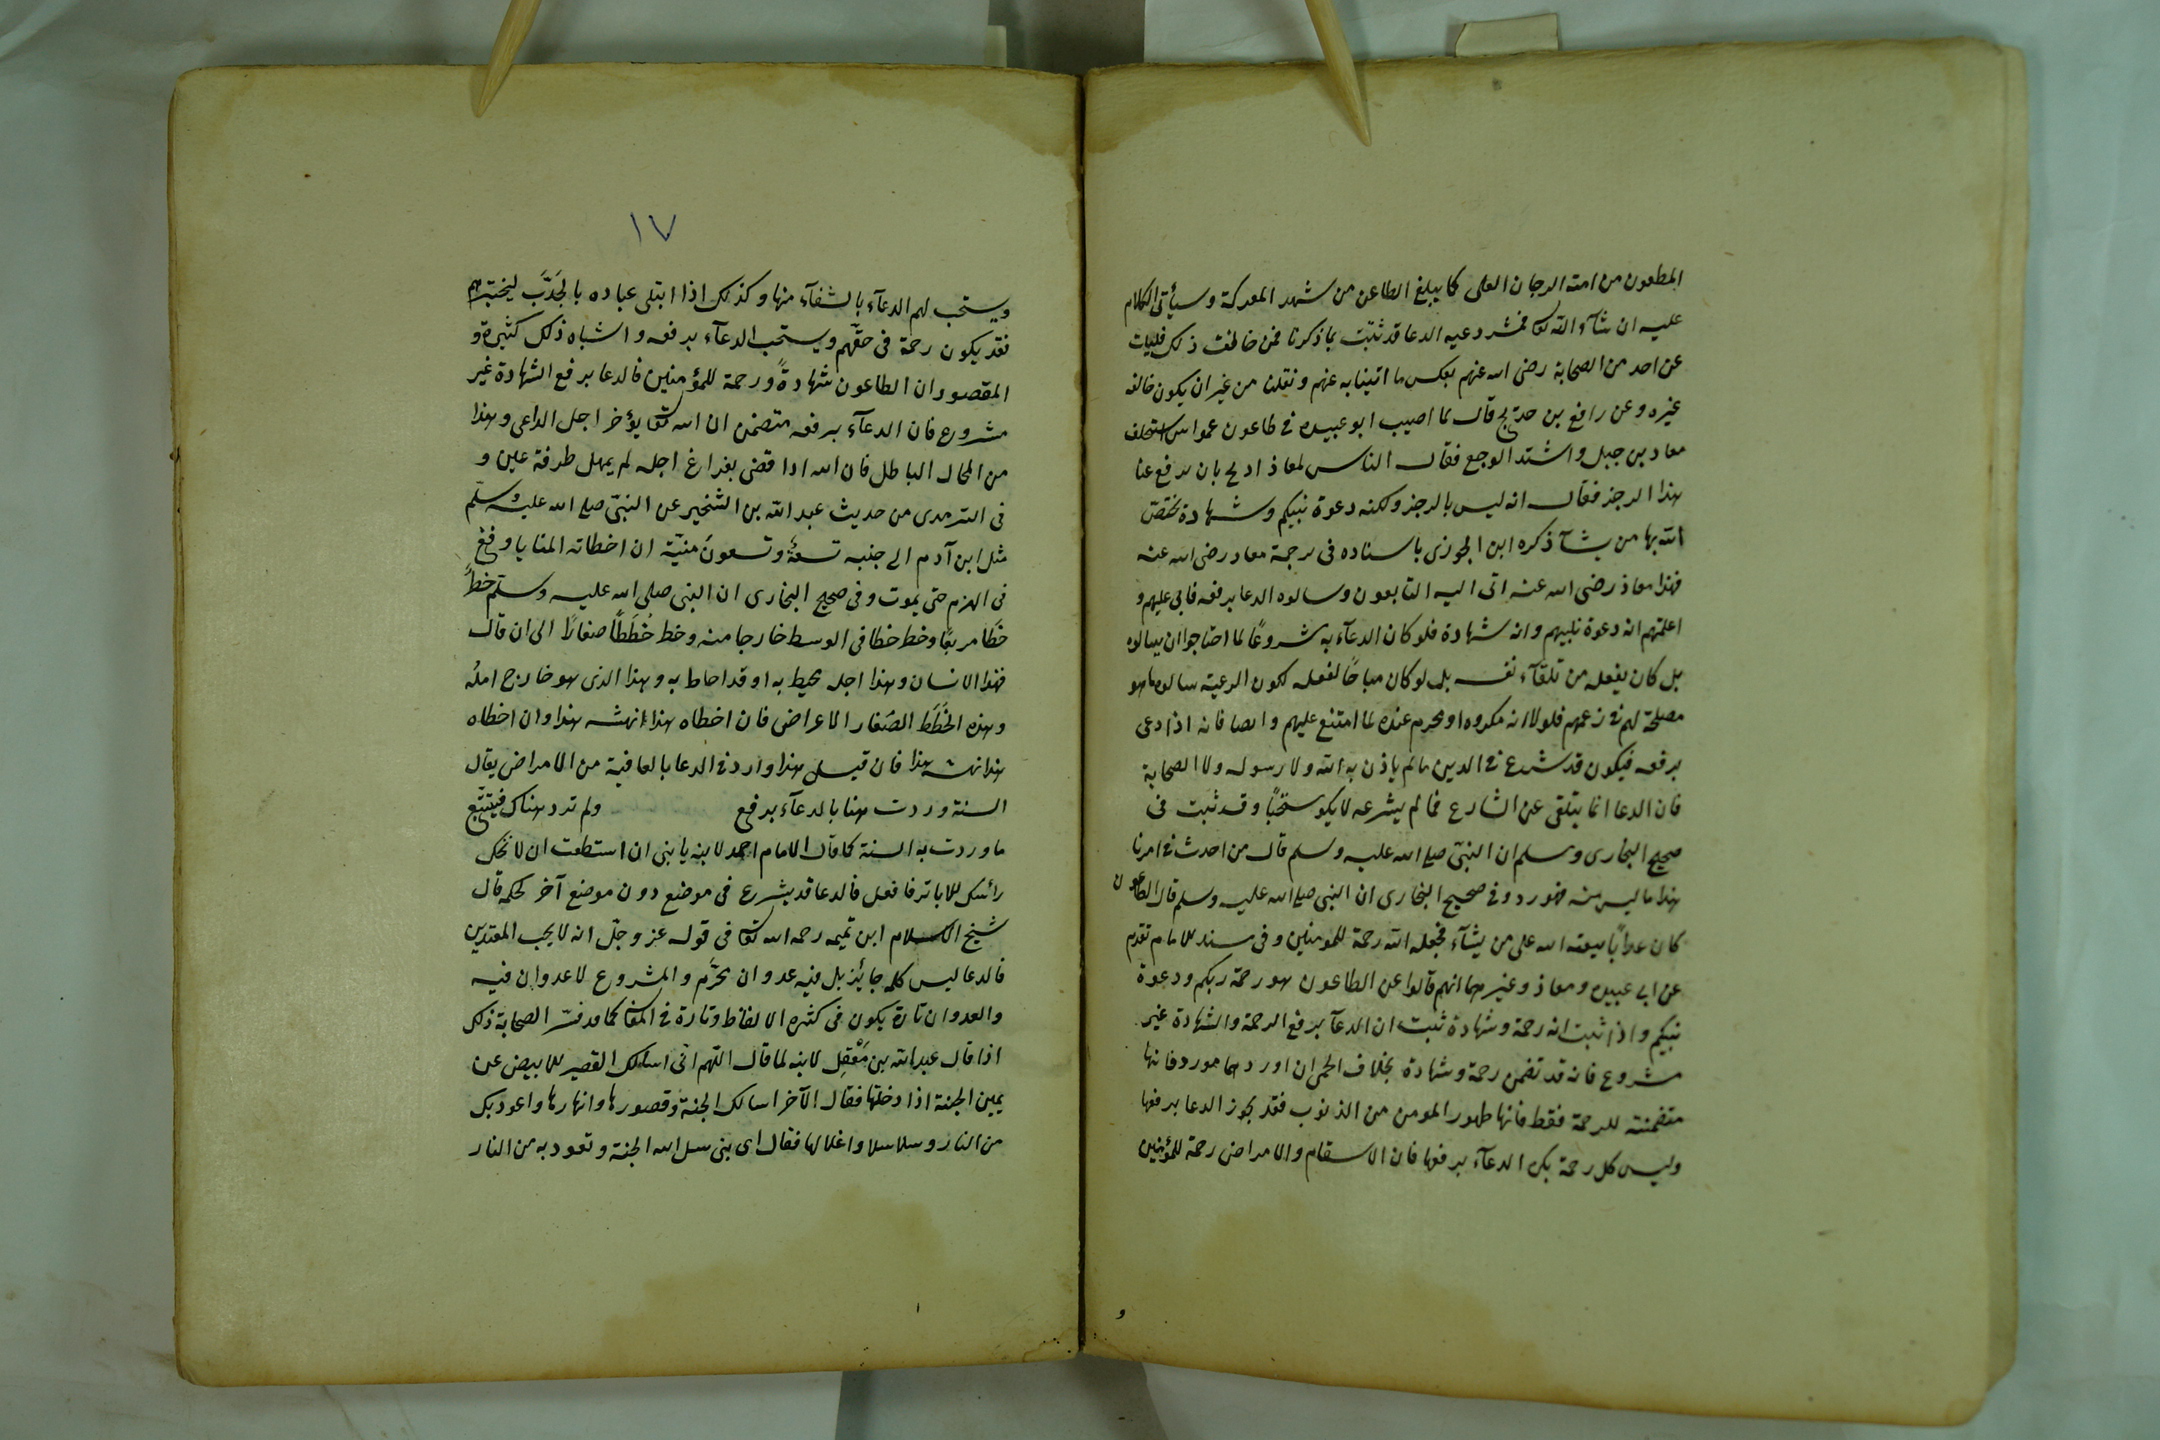 المطعون من امته الدرجات العلى كما يبلغ الطاعن من شهد المعركة وسيأتى الكلام
عليه ان شآء الله تعا فمشروعيه الدعا قد ثبتت بما ذكرنا فمن خالف ذلك فليات
عن احد من الصحابة رضى الله عنهم بعكس ما اتينا به عنهم ونقلنا من غير ان يكون خالفه
غيره وعن رافع بن خديج قال لما اصيب ابو عبيده فى طاعون عمواس استخلف
معاد بن جبل واشتد الوجع فقال الناس لمعاذ ادع بان يرفع عنا
هذا الرجز فقال انه ليس بالرجز ولكنه دعوة نبيكم وشهادة يختص
الله بها من يشآ ذكره ابن الجوزى باسناده فى ترجمة معاد رضى الله عنه
فهذا معاذ رضى الله عنه اتى اليه التابعون وسالوه الدعا برفعه فابى عليهم و
اعلمهم انه دعوة نبيهم وانه شهادة فلو كان الدعآء به مشروعًا لما احتاجوا ان يسالوه
بل كان يفعله من تلقآء نفسه بل لو كان مباحًا لفعله لكون الرعية سالوه ما هو
مصلحة لهم فى زعمهم فلولا انه مكروه او محرم عنده لما امتنع عليهم وايضا فانه اذا دعى
برفعه فيكون قد شرع فى الدين ما لم ياذن به الله ولا رسوله ولا الصحابة
فان الدعا انما يتلقى عن الشارع فما لم يشرعه لا يكو مستحبًا وقد ثبت فى
صحيح البخارى ومسلم ان النبى صلى الله عليه وسلم قال من احدث فى امرنا
هذا ما ليس منه فهو رد وفى صحيح البخارى ان النبى صلى الله عليه وسلم قال الطاعون
كان عدابًا يبعثه الله على من يشآء فجعله الله رحمة للمومنين وفى مسند للامام تقدم
عن ابى عبيده ومعاذ وغيرهما انهم قالوا عن الطاعون هو رحمة ربكم ودعوة
نبيكم واذا ثبت انه رحمة وشهادة ثبت ان الدعآ برفع الرحمة والشهادة غير
مشروع فانه قد تضمن رحمة وشهادة بخلاف الحمى ان اوردها مورد فانها
متضمنة للرحمة فقط فانها طهور المومن من الذنوب فقد يجوز الدعا برفعها
وليس كل رحمة يكره الدعآء برفعها فان الاسقام والامراض رحمة للمؤمنين
١٧
ويستحب لهم الدعآء بالشفآء منها وكذلك اذا ابتلى عباده بالجَدَبَ ليختبرهم
فقد يكون رحمة فى حقهم ويستحب الدعآء برفعه واشباه ذلك كثيرة و
المقصود ان الطاعون شهادةً ورحمة للمؤمنين فالدعا برفع الشهادة غير
مشروع فان الدعآء برفعه متضمن ان الله تعا يؤخر اجل الداعى وهذا
من المحال الباطل فان الله اذا قضى بفراغ اجله لم يمهل طرفة عين و
فى الترمدى من حديث عبد الله بن الشخير عن النبىّ صلى الله عليه وسلم
مثل ابن آدم الى جنبه تسعةٌ وتسعونَ منيّة ان اخطاته المنايا وقع
فى الهرم حتى يموت وفى صحيح البخارى ان النبى صلى الله عليه وسلم خطَّ
خطًا مربعًا وخط خطا فى الوسط خارجا منه وخط خُطَطًا صغارًا الى ان قال
فهذا الانسان وهذا اجله محيط به او قد احاط به وهذا الذى هو خارج امله
وهذه الخُطَط الصغار الاعراض فان اخطاه هذا انهشه هذا وان اخطاه
هذا نهشه هذا فان قيل هذا وارد فى الدعا بالعافية من الامراض يقال
السنة وردت هنا بالدعآء برفع ولم ترد هناك فيتبّع
ما وردت به السنة كما قال الامام احمد لابنه يا بنى ان استطعت ان لا تحك
رائسك الا باثر فافعل فالدعا قد يشرع فى موضع دون موضع آخر لحكمه قال
شيخ الاسلام ابن تيميه رحمه الله تعا فى قوله عز وجلّ انه لا يحب المعتدين
فالدعا ليس كله جايئز بل فيه عدوان محرّم والمشروع لا عدوان فيه
والعدوان تارة يكون فى كثرة الالفاظ وتارة فى المعانى كما قد فسّر الصحابة ذلك
اذا قال عبد الله بن مَغْفِل لابنه لما قال اللهم انى اسالك القصر الابيض عن
يمين الجنة اذا دخلتها فقال الآخر اسالك الجنة وقصورها وانهارها واعوذ بك
من النار وسلاسلا واغلالها فقال اى بنى سل الله الجنة وتعود به من النار